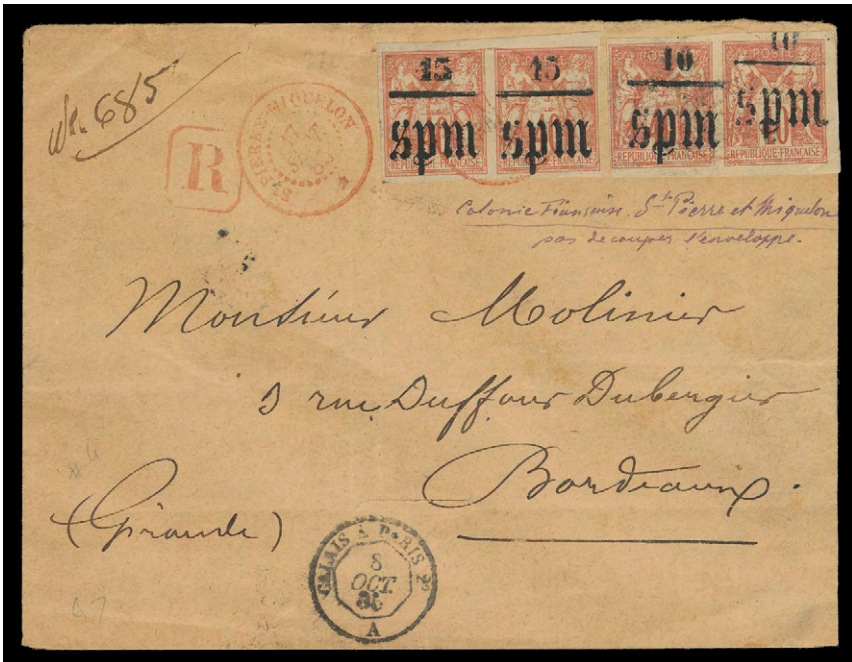 No. 685
R
ST PIERRE-MIQUELON
15 15 10 10
spm spm spm spm
POSTE
REPUBLIQUE-FRANCAISE REPUBLIQUE-FRANCAISE REPUBLIQUE FRANCAISE REPUBLIQUE-FRANCAISE
Colonie Française. St Pierre et Miquelon
pas decouper l'enveloppe.
Monsieur Molinier
3 rue Duffour Dubergier
Bordeaux.
(Gironde)
CALAIS A PARIS 2°
8
OCT.
A